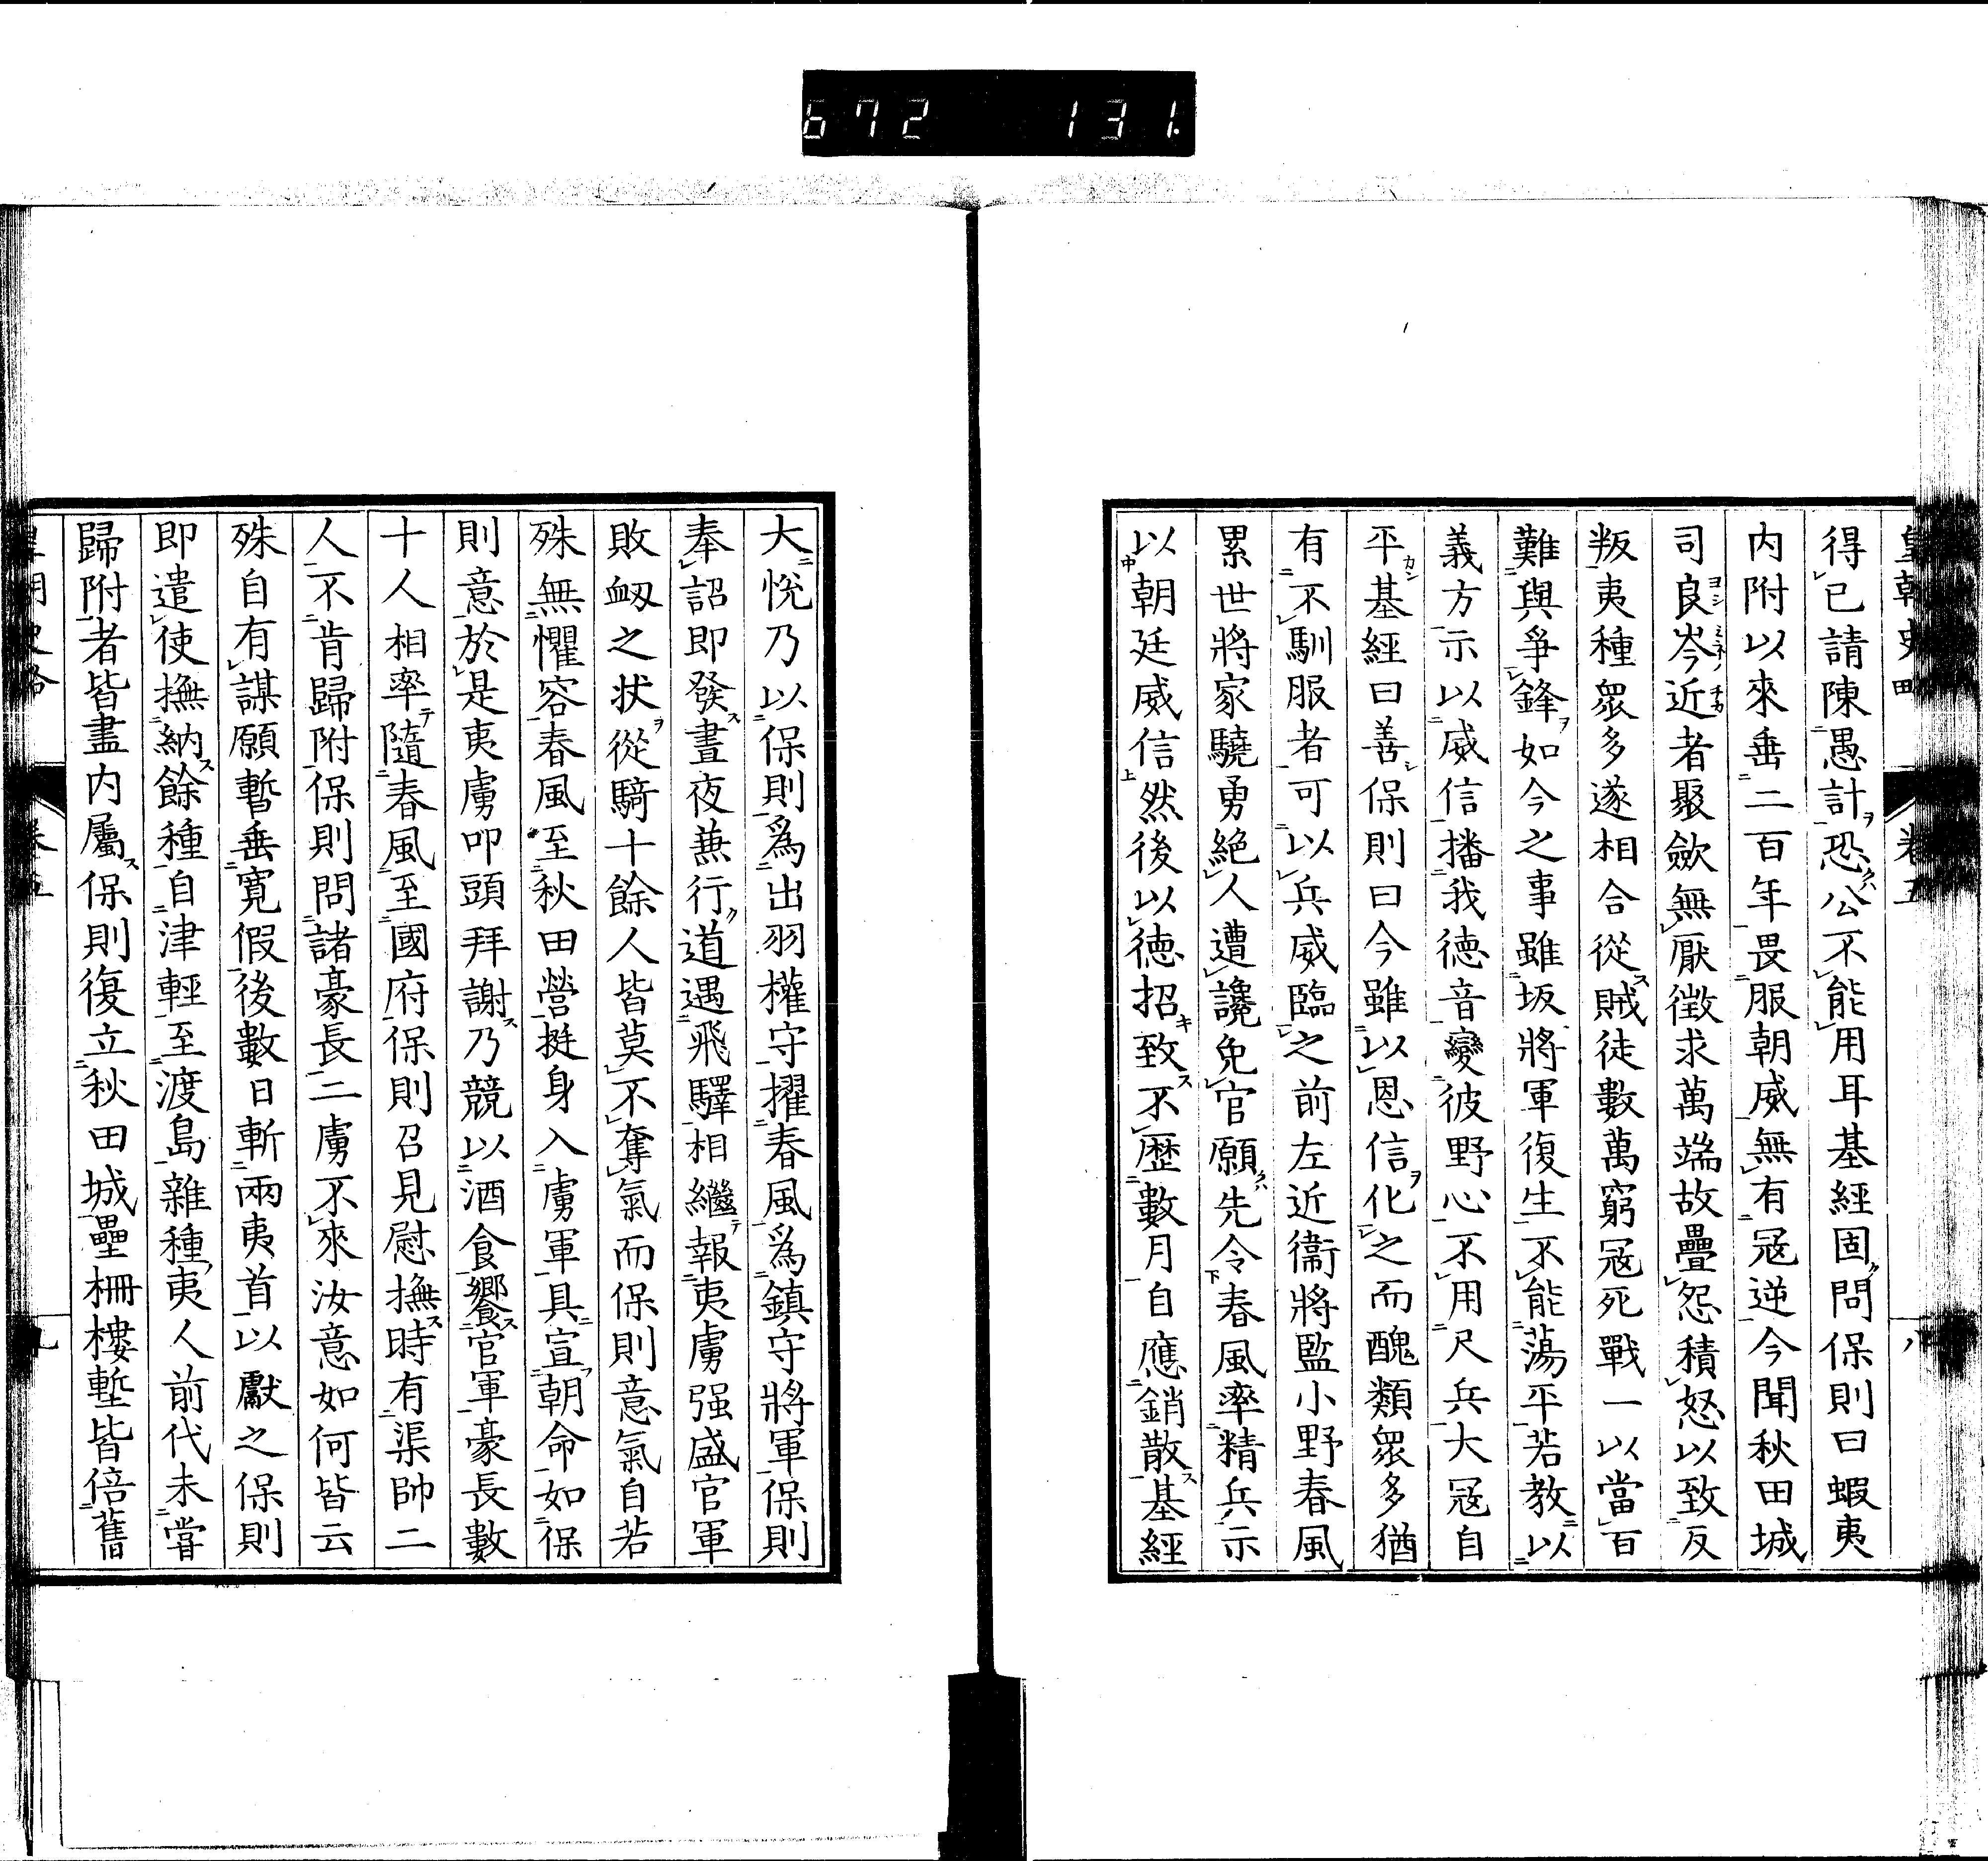 672 131
皇朝史略 卷五 八
得已請陳愚計恐公不能用耳基經固問保則曰蝦夷
内附以來垂二百年畏服朝威無有冦逆今聞秋田城
司良岑近者聚斂無厭徴求萬端故疊怨積怒以致反
叛夷種衆多遂相合從賊徒數萬窮冦死戰一以當百
難與爭鋒如今之事雖坂將軍復生不能蕩平若教以
義方示以威信播我德音變彼野心不用尺兵大冦自
平基經曰善保則曰今雖以恩信化之而醜類衆多猶
有不馴服者可以兵威臨之前左近衞將監小野春風
累世將家驍勇絶人遭讒免官願先令春風率精兵示
以朝廷威信然後以德招致不歴數月自應銷散基經
大悅乃以保則爲出羽權守擢春風爲鎭守將軍保則
奉詔即發晝夜兼行道遇飛驛相繼報夷虜强盛官軍
敗衂之状從騎十餘人皆莫不奪氣而保則意氣自若
殊無懼容春風至秋田營挺身入虜軍具宣朝命如保
則意於是夷虜叩頭拜謝乃競以酒食饗官軍豪長數
十人相率隨春風至國府保則召見慰撫時有渠帥二
人不肯歸附保則問諸豪長二虜不來汝意如何皆云
殊自有謀願暫垂寛假後數日斬兩夷首以獻之保則
即遣使撫納餘種自津輕至渡島雜種夷人前代未嘗
歸附者皆盡内屬保則復立秋田城壘柵樓塹皆倍舊